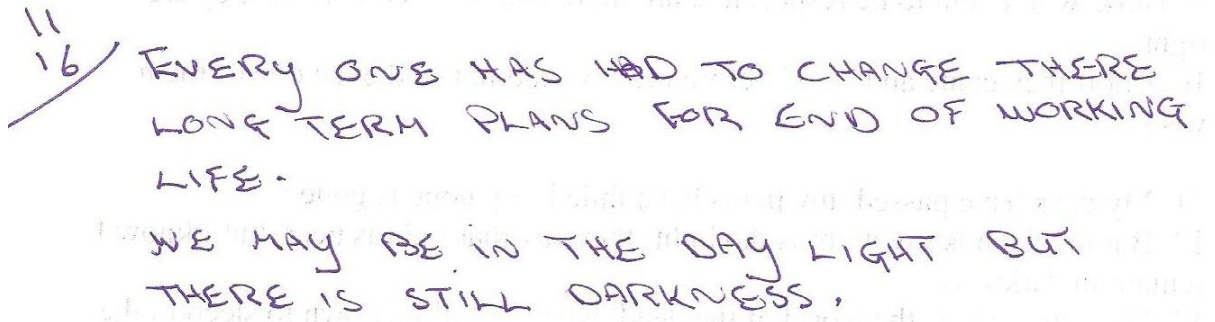 11
16/ EVERY ONE HAS HAD TO CHANGE THERE
LONG TERM PLANS FOR END OF WORKING
LIFE.
WE MAY BE IN THE DAY LIGHT BUT
THERE IS STILL DARKNESS.